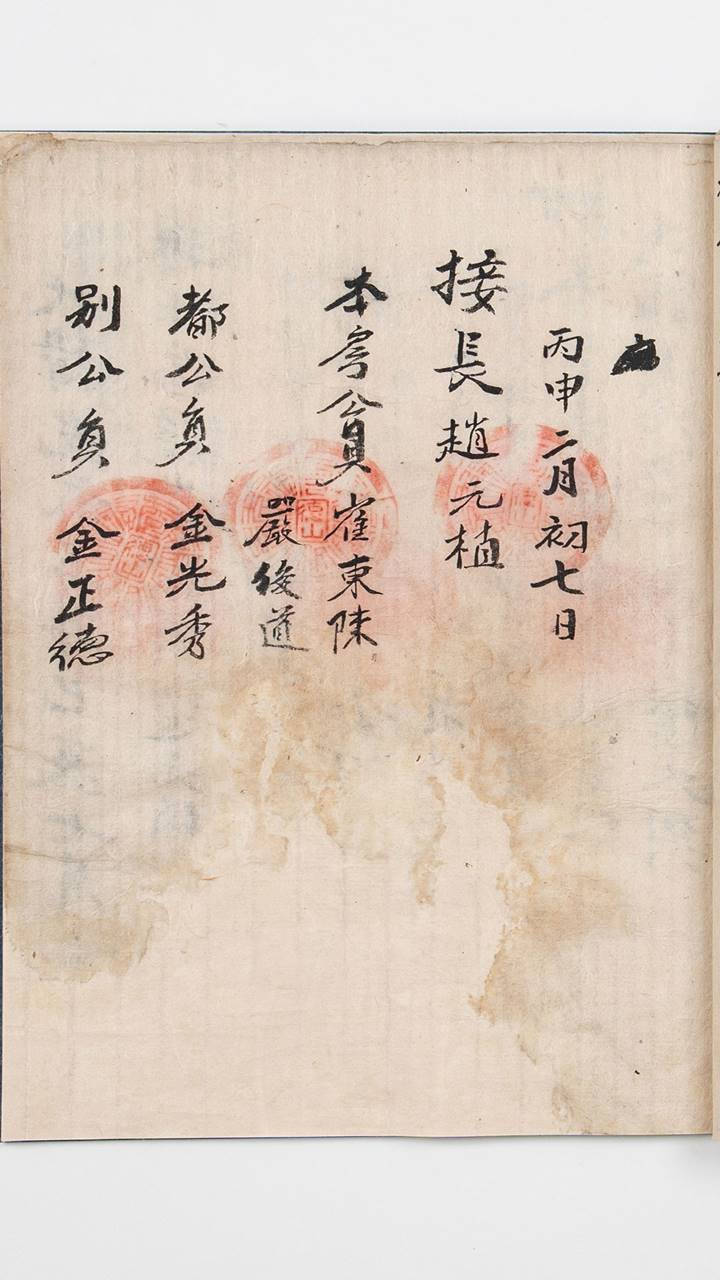 丙申二月初七日
接長趙元植
本房公員崔東陳
嚴俊道
都公員 金光秀
別公員 金正德